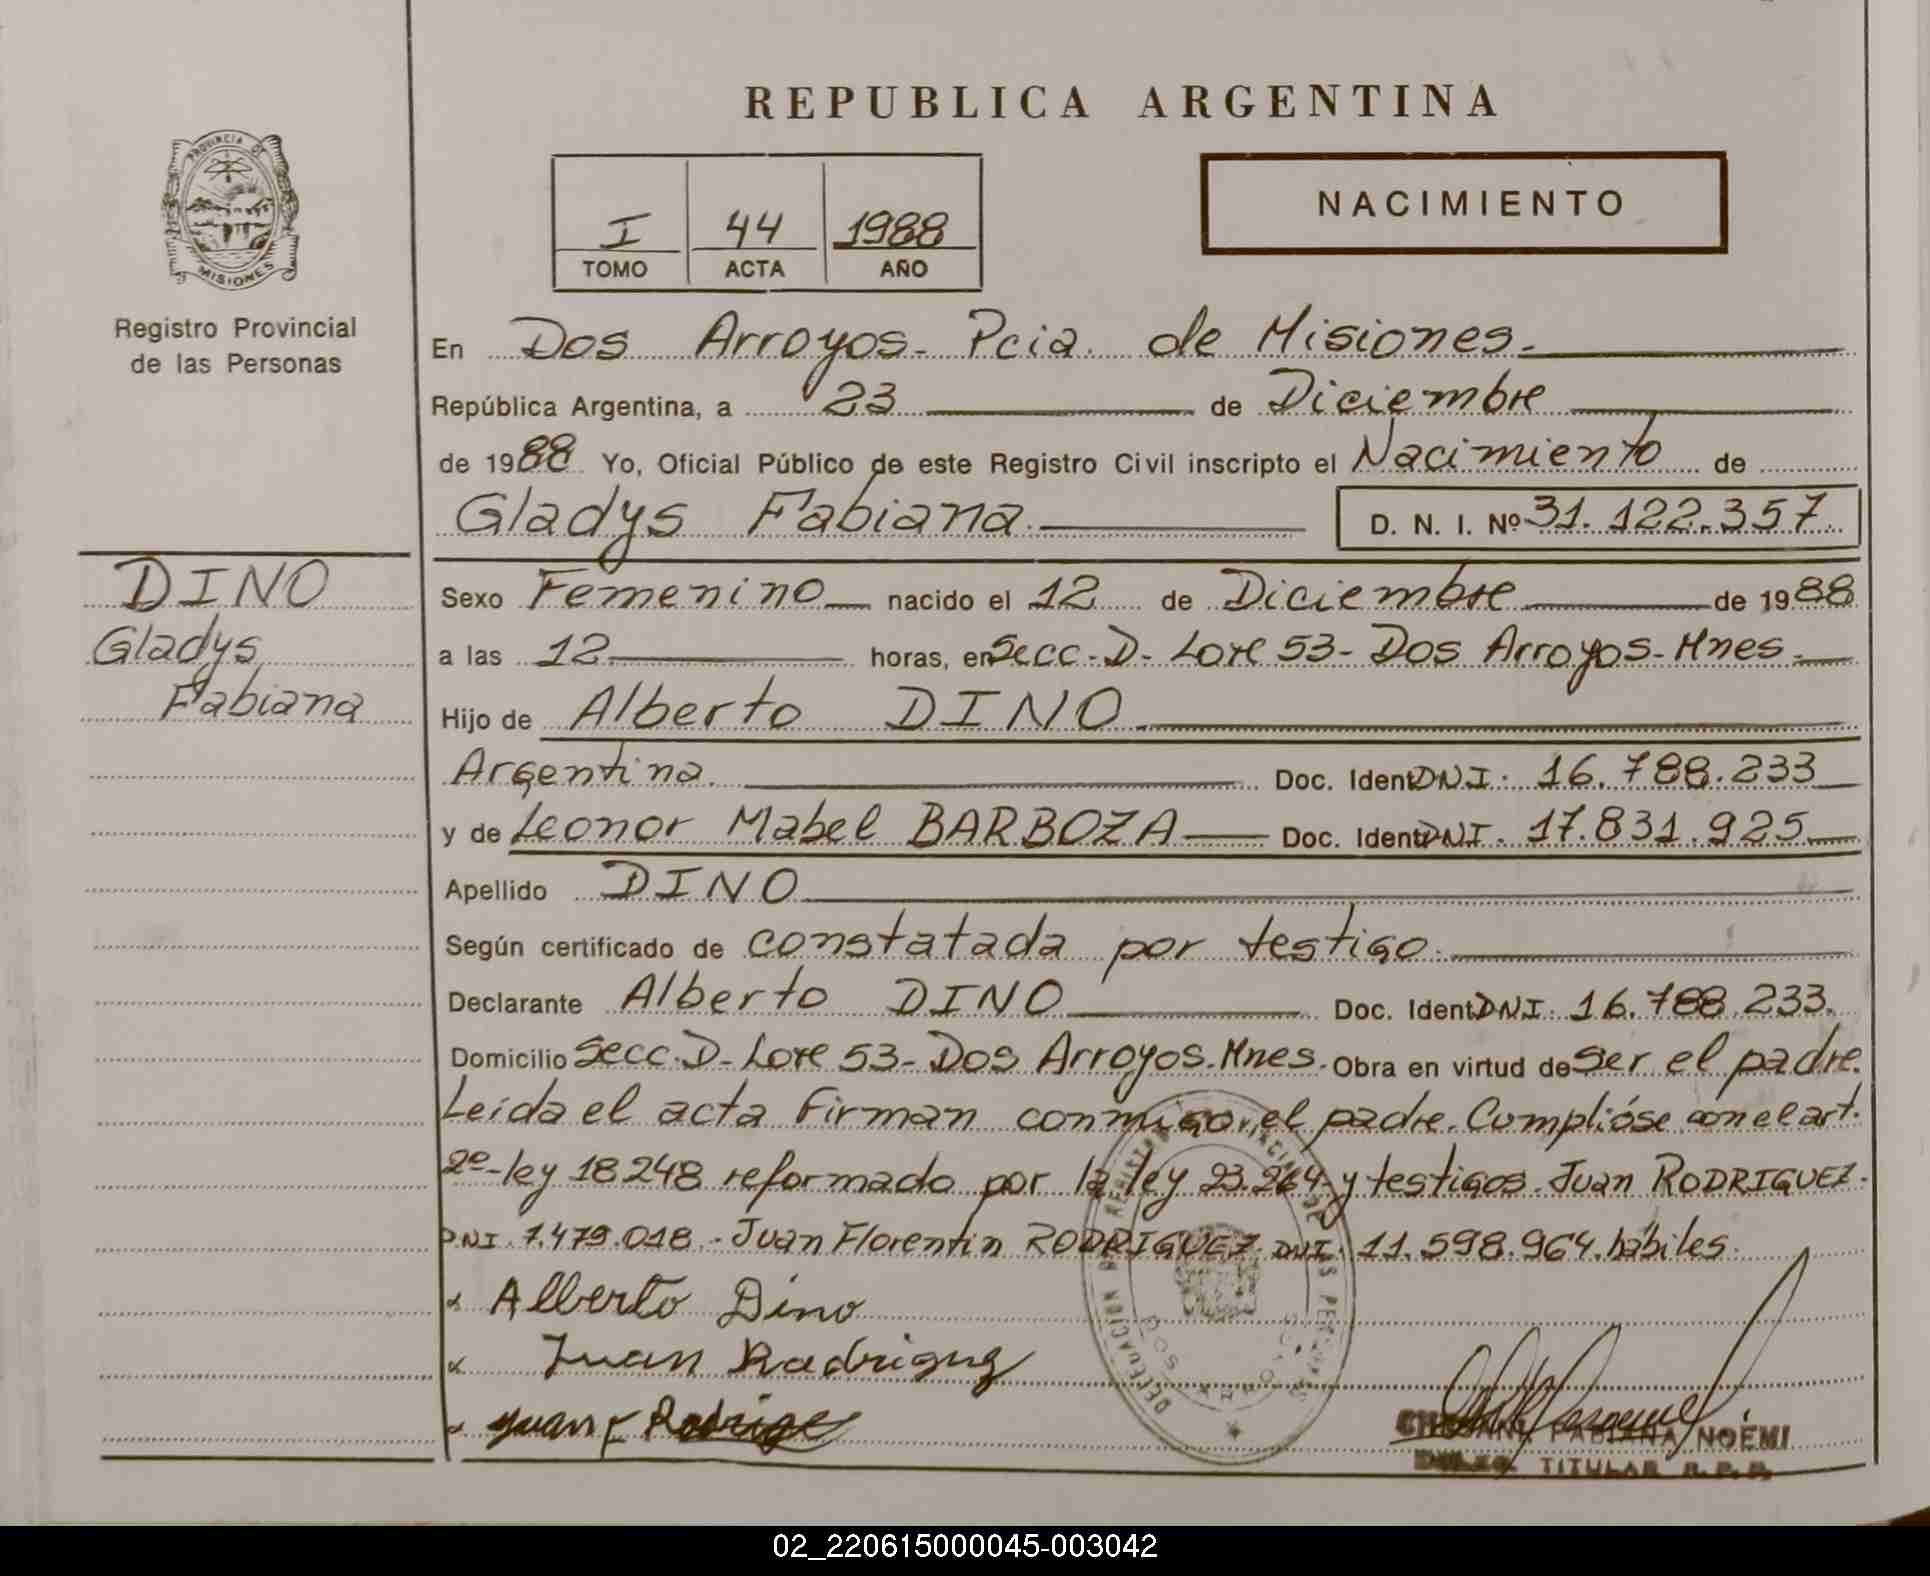 REPUBLICA ARGENTINA
PROVINCIA DE
MISIONES
Registro Provincial
de las Personas
I 44 1988
TOMO ACTA AÑO
NACIMIENTO
En Dos Arroyos - Pcia. de Misiones.-
República Argentina, a 23 de Diciembre
de 1988 Yo, Oficial Público de este Registro Civil inscripto el Nacimiento de
Gladys Fabiana. D. N. I. Nº 31.122.357
DINO
Gladys
Fabiana
Sexo Femenino nacido el 12 de Diciembre de 1988
a las 12 horas, en Secc.-D- Lote 53- Dos Arroyos-Mnes.
Hijo de Alberto DINO
Argentina. Doc. Ident. DNI: 16.788.233
y de Leonor Mabel BARBOZA Doc. Ident. DNI. 17.831.925
Apellido DINO
Según certificado de constatada por testigo.
Declarante Alberto DINO Doc. Ident. DNI. 16.788.233.
Domicilio Secc.D- Lote 53- Dos Arroyos.Mnes. Obra en virtud de ser el padre.
Leída el acta Firman conmigo, el padre. Cumplióse con el art.
2º-ley 18248 reformado por la ley 23.264- y testigos. Juan RODRIGUEZ.
DNI. 7.479.018 - Juan Florentin RODRIGUEZ. DNI. 11.598.964. hábiles.
Alberto Dino
Juan Rodriguez
Juan F Rodrige
FABIANA NOEMI
TITULAR R. P. P.
02_220615000045-003042